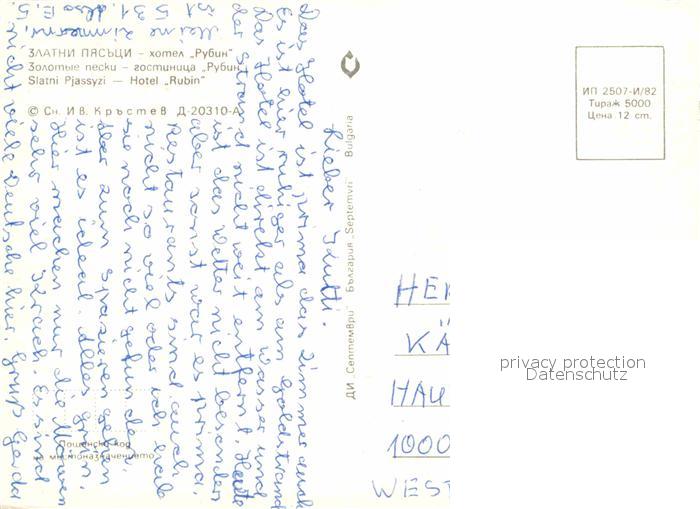 ЗЛАТНИ ПЯСЪЦИ – хотел „Рубин“
Золотые пески – гостиница „Рубин“
Slatni Pjassyzi — Hotel „Rubin“
© Сн. Ив. Кръстев Д-20310-А
Lieber Kutti.
Das Hotel ist prima das Zimmer auch
Es ist hier ruhiger als am Goldstrand
Das Hotel ist direkt am Wasser und
der Strand nicht weit entfernt. Heute
ist das Wetter nicht besonders
aber sonst war es prima.
Restaurants sind auch
nicht so viel oder ich hab
sie noch nicht gefunden.
Aber zum spazieren gehen
ist es ideal. Alles grün.
Hier machen nur die Möwen
sehr viel Krach. Es sind
nicht viele Deutsche hier. Gruß Gerda
Meine Zimmernr.
ist 531. Also E. 5.
Пощенски код
на местоназначението
ДИ „Септември“ България „Septemvri“ Bulgaria
ИП 2507-И/82
Тираж 5000
Цена 12 ст.
HER
KÄ
HAU
1000
WEST
privacy protection
Datenschutz